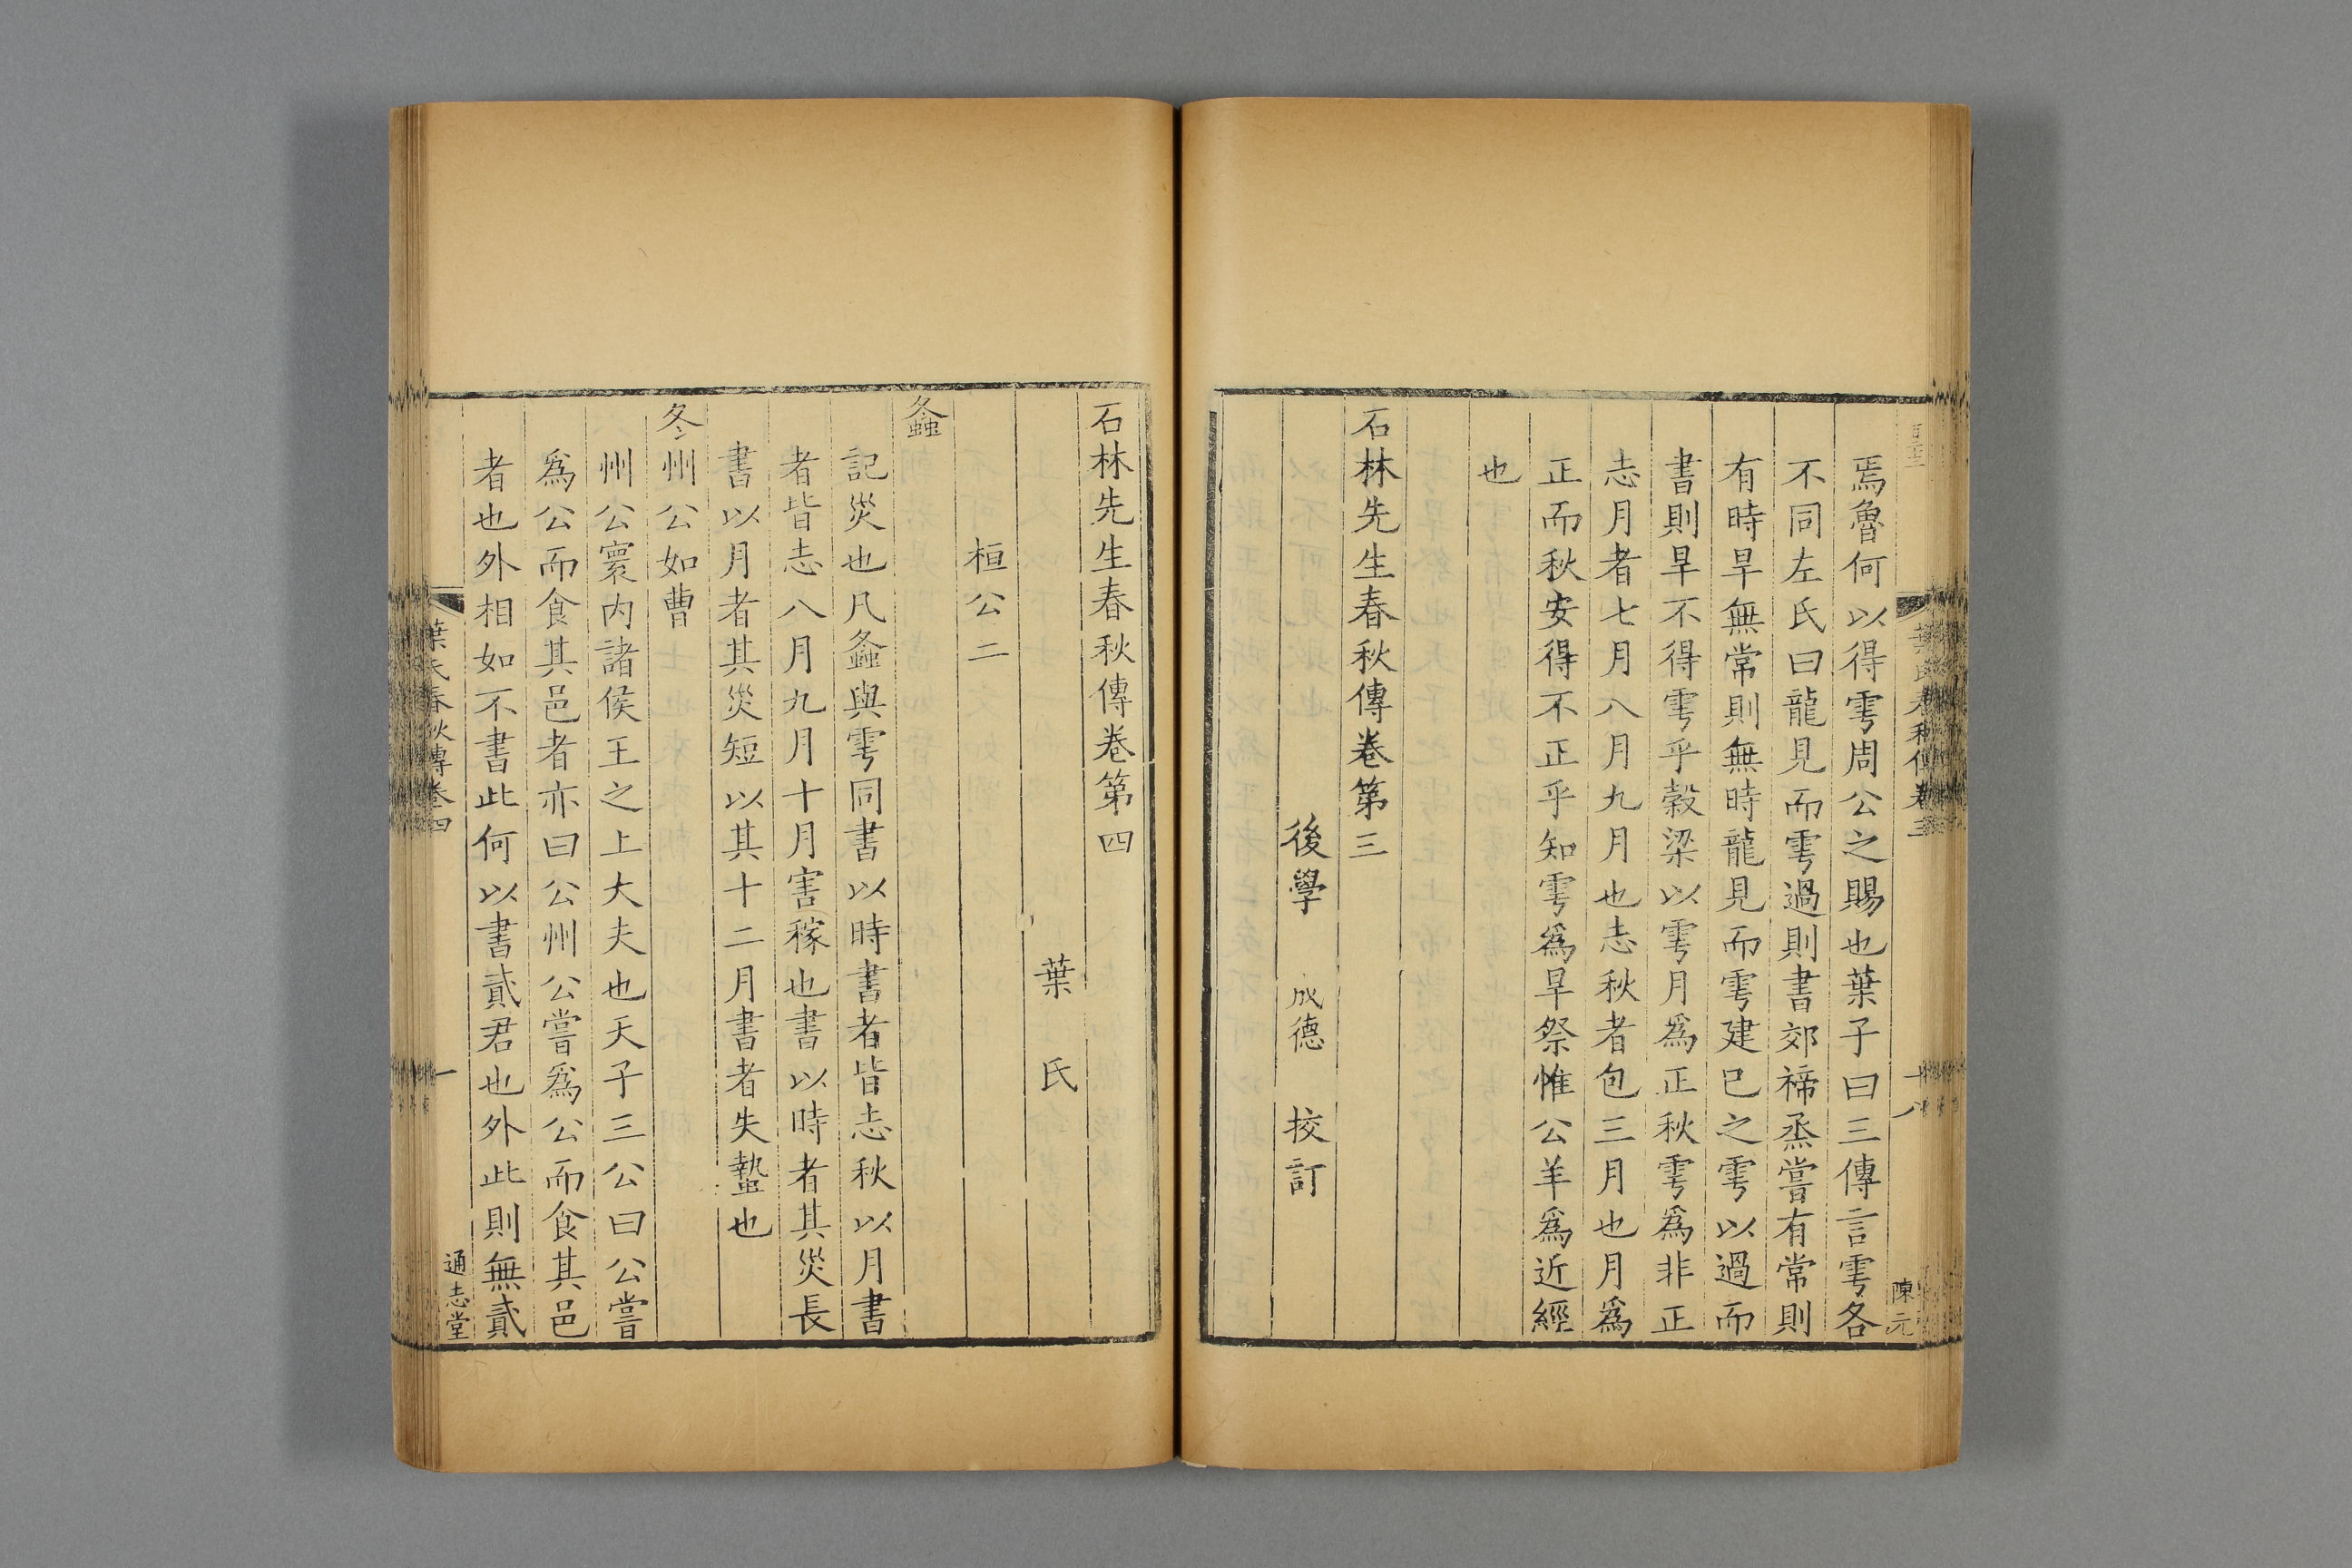 焉魯何以得雩周公之賜也葉子曰三傳言雩各
不同左氏曰龍見而雩過則書郊禘烝嘗有常則
有時旱無常則無時龍見而雩建巳之雩以過而
書則旱不得雩乎榖梁以雩月為正秋雩為非正
志月者七月八月九月也志秋者包三月也月為
正而秋安得不正乎知雩為旱祭惟公羊為近經
也
石林先生春秋傳卷第三
後學 成德 挍訂
葉氏春秋傳卷三
十八
陳元
石林先生春秋傳卷第四
葉 氏
桓公二
螽
記災也凡螽與雩同書以時書者皆志秋以月書
者皆志八月九月十月害稼也書以時者其災長
書以月者其災短以其十二月書者失蟄也
冬州公如曹
州公寰内諸侯王之上大夫也天子三公曰公嘗
為公而食其邑者亦曰公州公嘗為公而食其邑
者也外相如不書此何以書貳君也外此則無貳
葉氏春秋傳卷四
一
通志堂